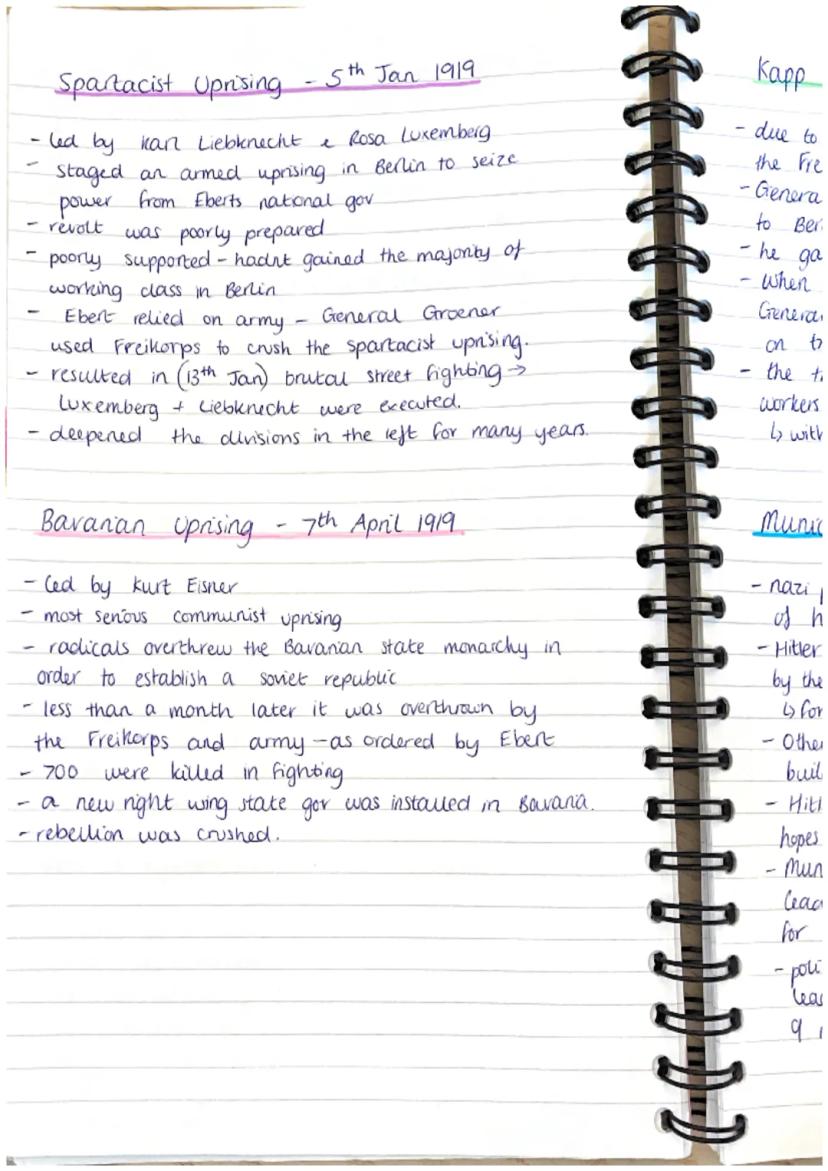 Spartacist Uprising - 5th Jan 1919
- led by Karl Liebknecht & Rosa Luxemberg
- staged an armed uprising in Berlin to seize
power from Eberts national gov
- revolt was poorly prepared
- poorly supported - hadnt gained the majority of
working class in Berlin
- Ebert relied on army - General Groener
used Freikorps to crush the Spartacist uprising.
- resulted in (13th Jan) brutal street fighting →
Luxemberg + Liebknecht were executed.
- deepened the divisions in the left for many years.
Bavarian Uprising - 7th April 1919
- led by Kurt Eisner
- most serious communist uprising
- radicals overthrew the Bavarian state monarchy in
order to establish a soviet republic
- less than a month later it was overthrown by
the Freikorps and army - as ordered by Ebert
- 700 were killed in fighting
- a new right wing state gov was installed in Bavaria.
- rebellion was crushed.
Kapp
- due to
the Fre
- Genera
to Ber
- he ga
- when
Genera
on t
- the t
workers
↳ with
Munic
- nazi p
of h
- Hitler
by the
↳ for
- Other
buil
- Hitl
hopes
- Mun
leac
for
- poli
lea
9